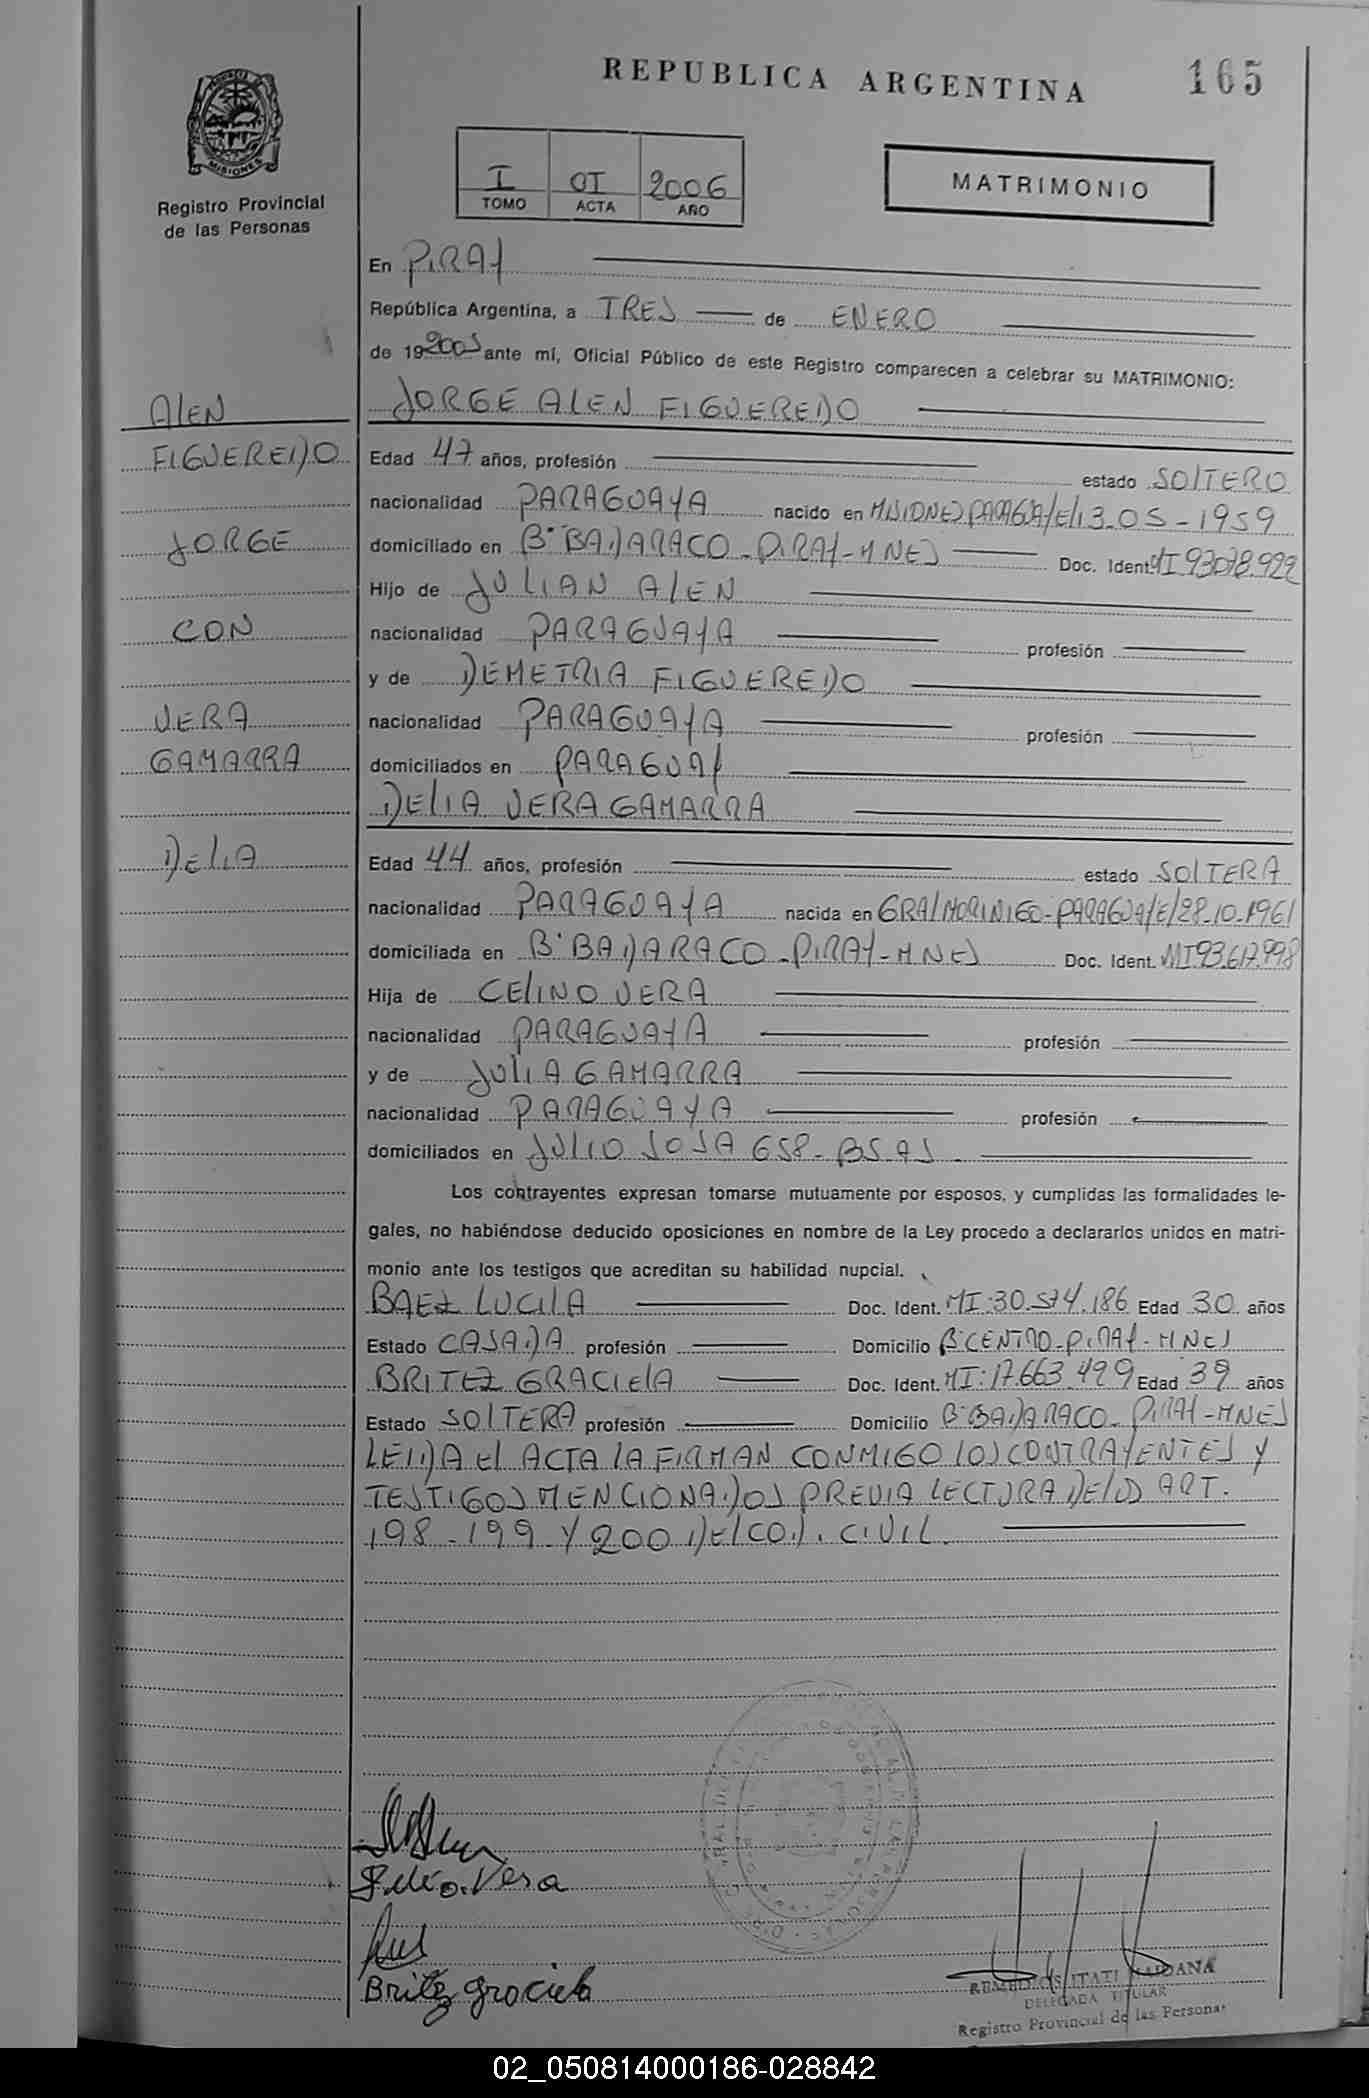 REPUBLICA ARGENTINA
165
MISIONES
Registro Provincial
de las Personas
I OI 2006
TOMO ACTA AÑO
MATRIMONIO
En PIRAY
República Argentina, a TRES de ENERO
de 19 ante mí, Oficial Público de este Registro comparecen a celebrar su MATRIMONIO:
JORGE ALEN FIGUEREDO
ALEN
FIGUEREDO
JORGE
CON
VERA
GAMARRA
DELIA
Edad 47 años, profesión estado SOLTERO
nacionalidad PARAGUAYA nacido en MISIONES PARAGUAY EL 13-05-1959
domiciliado en Bº BADARACO-PIRAY-MNES Doc. Ident. MI 93078.922
Hijo de JULIAN ALEN
nacionalidad PARAGUAYA profesión
y de DEMETRIA FIGUEREDO
nacionalidad PARAGUAYA profesión
domiciliados en PARAGUAY
DELIA VERA GAMARRA
Edad 44 años, profesión estado SOLTERA
nacionalidad PARAGUAYA nacida en GRAL MORINIGO-PARAGUAY EL 28-10-1961
domiciliada en Bº BADARACO-PIRAY-MNES Doc. Ident. MI 93.617.998
Hija de CELINO VERA
nacionalidad PARAGUAYA profesión
y de JULIA GAMARRA
nacionalidad PARAGUAYA profesión
domiciliados en JULIO SOSA 658-BS.AS.
Los contrayentes expresan tomarse mutuamente por esposos, y cumplidas las formalidades le-
gales, no habiéndose deducido oposiciones en nombre de la Ley procedo a declararlos unidos en matri-
monio ante los testigos que acreditan su habilidad nupcial.
BAEZ LUCILA Doc. Ident. MI:30.574.186 Edad 30 años
Estado CASADA profesión Domicilio Bº CENTRO-PIRAY-MNES
BRITEZ GRACIELA Doc. Ident. MI:17.663.499 Edad 39 años
Estado SOLTERA profesión Domicilio Bº BADARACO-PIRAY-MNES
LEIDA EL ACTA LA FIRMAN CONMIGO LOS CONTRAYENTES Y
TESTIGOS MENCIONADOS PREVIA LECTURA DE LOS ART.
198-199 Y 200 DEL COD. CIVIL.
Delia Vera
Britez Graciela
ITATI MAIDANA
DELEGADA TITULAR
Registro Provincial de las Personas
02_050814000186-028842